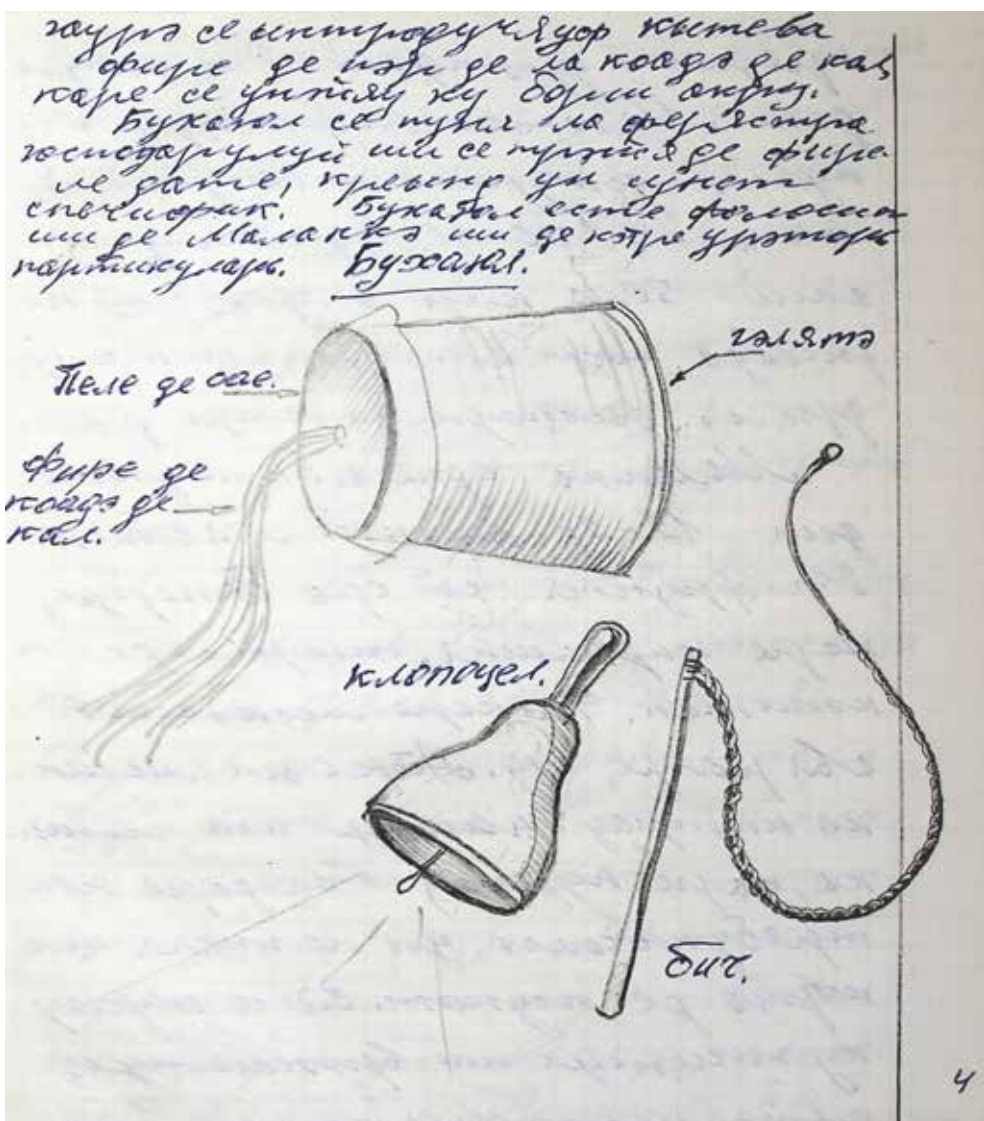 се кытева
фире де пэр де ла коадэ де кал,
каре се унжяу ку борш акру.
Бухаюл се пуня ла ферястра
господарулуй ши се трэжя де фире-
ле дате, креынд ун сунет
спечифик. Бухаюл есте фолосит
ши де Маланкэ ши де кэтре урэторь
партикуларь. Бухаюл.
гэлятэ
Пеле де оае.
Фире де
коадэ де
кал.
клопоцел.
бич.
4